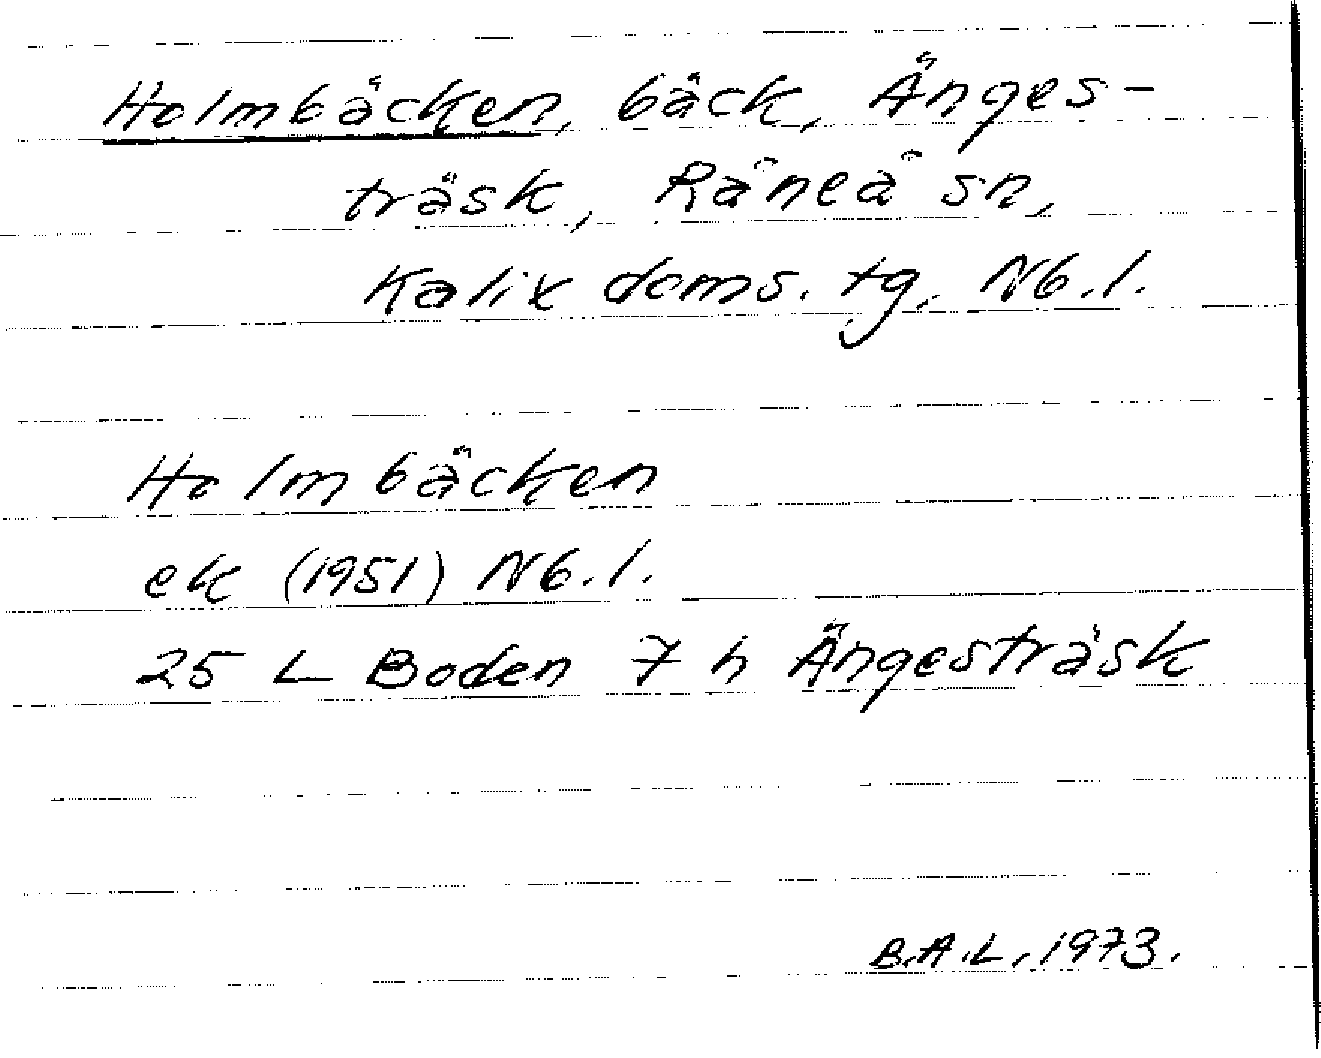 Holmbäcken, bäck, Änges-
träsk, Råneå sn,
Kalix doms. tg, Nb.l.
Holmbäcken
ek (1951) Nb.l.
25 L Boden 7 h Ängesträsk
B.A.L, 1973.